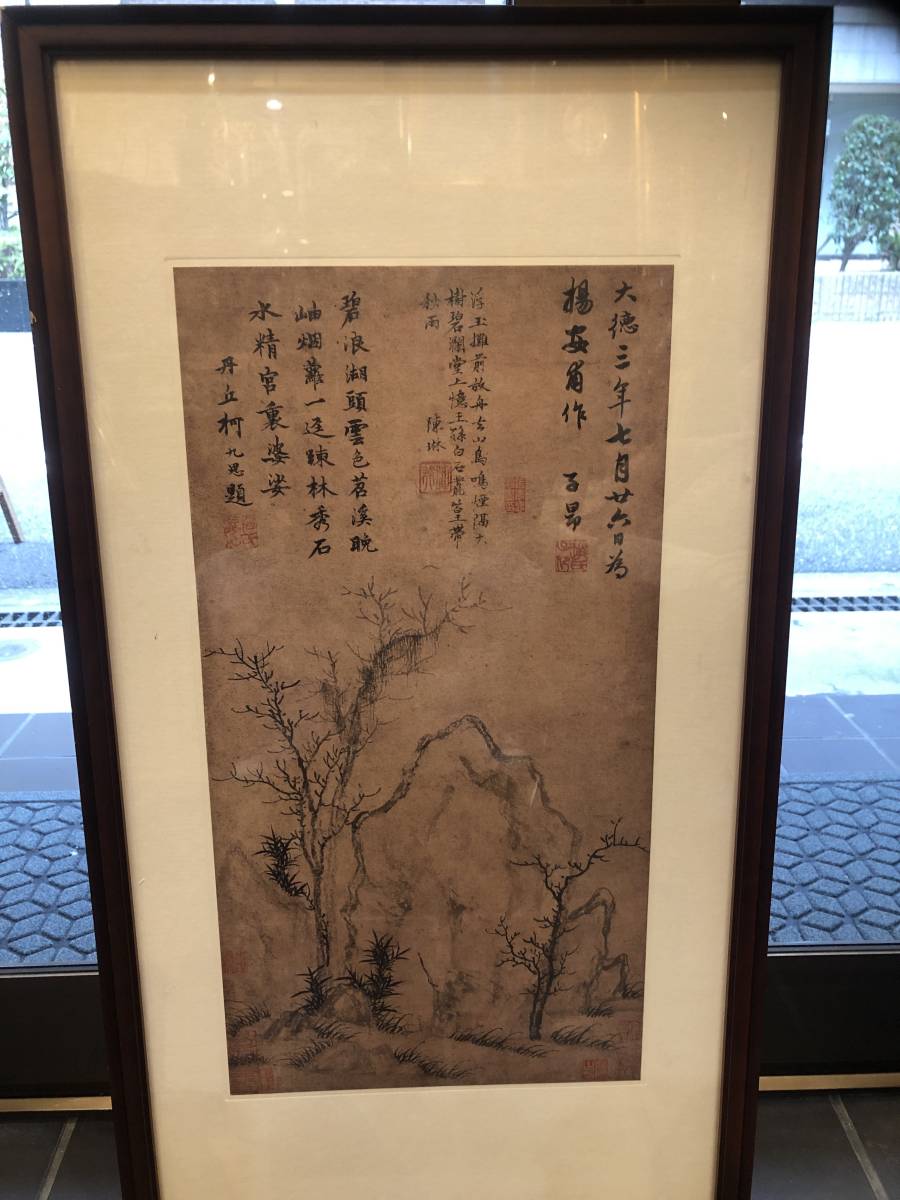 大德三年七月廿六日為
楊安甫作 子昂
浮玉攤前放舟去山鳥鳴煙隔大
樹碧瀾堂上憶王孫白石蒼筤帶
秋雨
陳琳
碧浪湖頭雲色苕溪晚
岫烟蘿一逕踈林秀石
水精宮裏婆娑
丹丘柯九思題